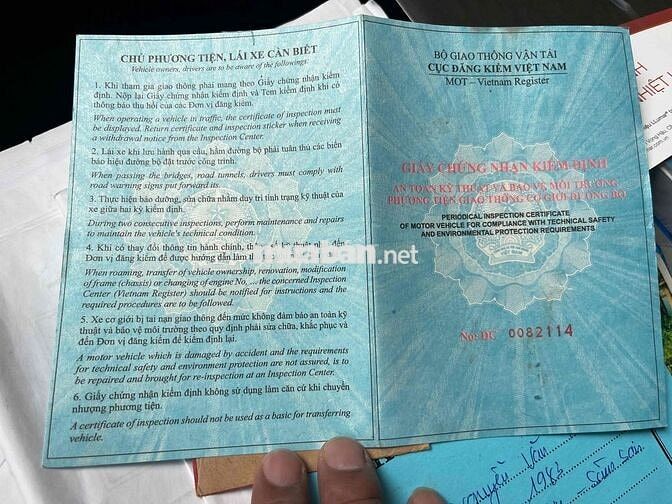 CHỦ PHƯƠNG TIỆN, LÁI XE CẦN BIẾT
Vehicle owners, drivers are to be aware of the followings.
1. Khi tham gia giao thông phải mang theo Giấy chứng nhận kiểm
định. Nộp lại Giấy chứng nhận kiểm định và Tem kiểm định khi có
thông báo thu hồi của các Đơn vị đăng kiểm.
When operating a vehicle in traffic, the certificate of inspection must
be displayed. Return certificate and inspection sticker when receiving
a withdrawal notice from the Inspection Center.
2. Lái xe khi lưu hành qua cầu, hầm đường bộ phải tuân thủ các biển
báo hiệu đường bộ đặt trước công trình.
When passing the bridges, road tunnels, drivers must comply with
road warning signs put forward its.
3. Thực hiện bảo dưỡng, sửa chữa nhằm duy trì tình trạng kỹ thuật của
xe giữa hai kỳ kiểm định.
During two consecutive inspections, perform maintenance and repairs
to maintain the vehicle's technical condition.
4. Khi có thay đổi thông tin hành chính, thông số kỹ thuật phải đến
Đơn vị đăng kiểm để được hướng dẫn làm
When roaming, transfer of vehicle ownership, renovation, modification
of frame (chassis) or changing of engine No, ... the concerned Inspection
Center (Vietnam Register) should be notified for instructions and the
required procedures are to be followed.
5. Xe cơ giới bị tai nạn giao thông đến mức không đảm bảo an toàn kỹ
thuật và bảo vệ môi trường theo quy định phải sửa chữa, khắc phục và
đến Đơn vị đăng kiểm để kiểm định lại.
A motor vehicle which is damaged by accident and the requirements
for technical safety and environment protection are not assured, is to
be repaired and brought for re-inspection at an Inspection Center.
6. Giấy chứng nhận kiểm định không sử dụng làm căn cứ khi chuyển
nhượng phương tiện.
A certificate of inspection should not be used as a basic for transferring
vehicle.
BỘ GIAO THÔNG VẬN TẢI
CỤC ĐĂNG KIỂM VIỆT NAM
MOT – Vietnam Register
GIẤY CHỨNG NHẬN KIỂM ĐỊNH
AN TOÀN KỸ THUẬT VÀ BẢO VỆ MÔI TRƯỜNG
PHƯƠNG TIỆN GIAO THÔNG CƠ GIỚI ĐƯỜNG BỘ
PERIODICAL INSPECTION CERTIFICATE
OF MOTOR VEHICLE FOR COMPLIANCE WITH TECHNICAL SAFETY
AND ENVIRONMENTAL PROTECTION REQUIREMENTS
No: DC 0082114
muaban.net
NHIỆT
Nguyễn Văn
1986
Sầm Sơn